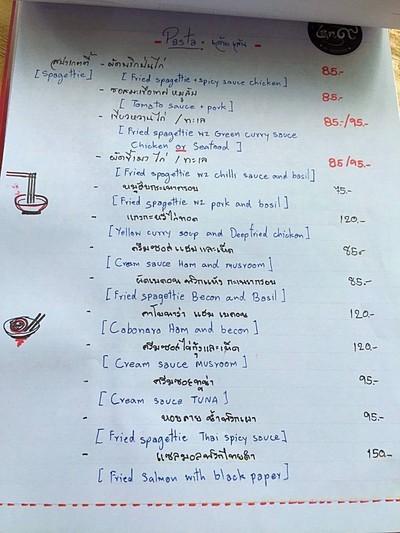 - Pasta -
สปาเกตตี้ - ผัดพริกเผาไก่ 85.-
[Spagettie] [Fried spagettie + spicy sauce chicken]
- ซอสมะเขือเทศ หมูสับ 85.-
[Tomato sauce + pork]
- เขียวหวานไก่ / ทะเล 85.-/95.-
[Fried spagettie wz Green curry sauce
Chicken or Seafood]
- ผัดขี้เมาไก่ / ทะเล 85/95.-
[Fried spagettie wz chilli sauce and basil]
- หมูสับกะเพรากรอบ 75.-
[Fried spagettie wz pork and basil]
- แกงกะหรี่ไก่ทอด 120.-
[Yellow curry soup and Deepfried chicken]
- ครีมซอส แฮม และเห็ด 85.-
[Cream sauce Ham and musroom]
- ผัดเบคอน พริกแห้ง กะเพรากรอบ 85.-
[Fried spagettie Becon and Basil]
- คาโบนาร่า แฮม เบคอน 120.-
[Cabonara Ham and becon]
- ครีมซอสไข่กุ้งและเห็ด 120.-
[Cream sauce Musroom]
- ครีมซอสทูน่า 95.-
[Cream sauce TUNA]
- หอยลาย น้ำพริกเผา 95.-
[Fried spagettie Thai spicy sauce]
- แซลมอลพริกไทยดำ 150.-
[Fried Salmon with black paper]